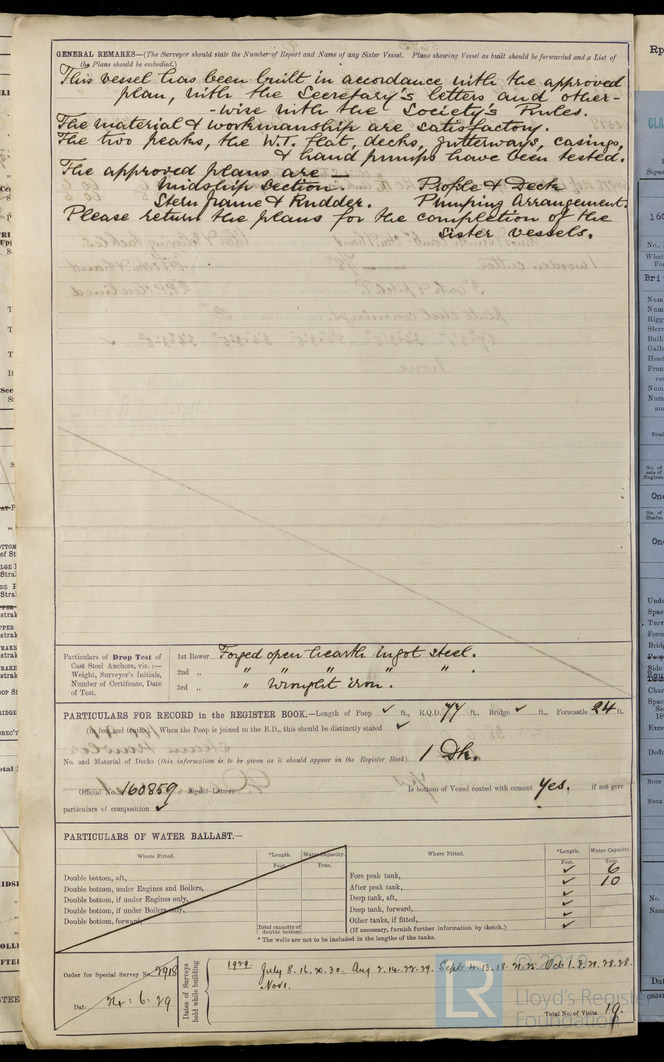 GENERAL REMARKS—(The Surveyor should state the Number of Report and Name of any Sister Vessel. Plans showing Vessel as built should be forwarded and a List of
the Plans should be embodied.)
This vessel has been built in accordance with the approved
plan, with the Secretary's letters and other-
-wise with the Society's Rules.
The material & workmanship are satisfactory.
The two peaks, the W.T. flat, decks, gutterways, casings,
& hand pumps have been tested.
The approved plans are —
Midship Section. Profile & Deck
Stern frame & Rudder. Pumping Arrangement.
Please return the plans for the completion of the
sister vessels.
Particulars of Drop Test of
Cast Steel Anchors, viz. :—
Weight, Surveyor's Initials,
Number of Certificate, Date
of Test.
1st Bower Forged open hearth Ingot steel.
2nd „ " " " " " .
3rd „ " Wrought iron.
PARTICULARS FOR RECORD in the REGISTER BOOK.—Length of Poop ✓ ft., R.Q.D. 77 ft., Bridge ✓ ft., Forecastle 24 ft.
(in feet and tenths). When the Poop is joined to the B.D., this should be distinctly stated ✓
No. and Material of Decks (this information is to be given as it should appear in the Register Book) 1 Dk.
Official No. 160859; Signal Letters Is bottom of Vessel coated with cement Yes. if not give
particulars of composition ✓
PARTICULARS OF WATER BALLAST.—
Where Fitted. *Length. Water Capacity. Where Fitted. *Length. Water Capacity.
Feet. Tons. Feet. Tons.
Double bottom, aft, Fore peak tank, ✓ 6
Double bottom, under Engines and Boilers, After peak tank, ✓ 10
Double bottom, if under Engines only, Deep tank, aft, ✓
Double bottom, if under Boilers only, Deep tank, forward, ✓
Double bottom, forward, Other tanks, if fitted, ✓
Total capacity of double bottom (If necessary, furnish further information by sketch.)
* The wells are not to be included in the lengths of the tanks.
Order for Special Survey No. 2918
Date 24 : 6 : 29
Dates of Surveys
held while building
1929. July 8. 16. 20. 30. Aug 7. 14. 22. 29. Sept 4. 13. 18. Oct 1. 3. 21.
Nov 1.
Total No. of Visits 19.
© 2019
LR
Lloyd's Register
Foundation